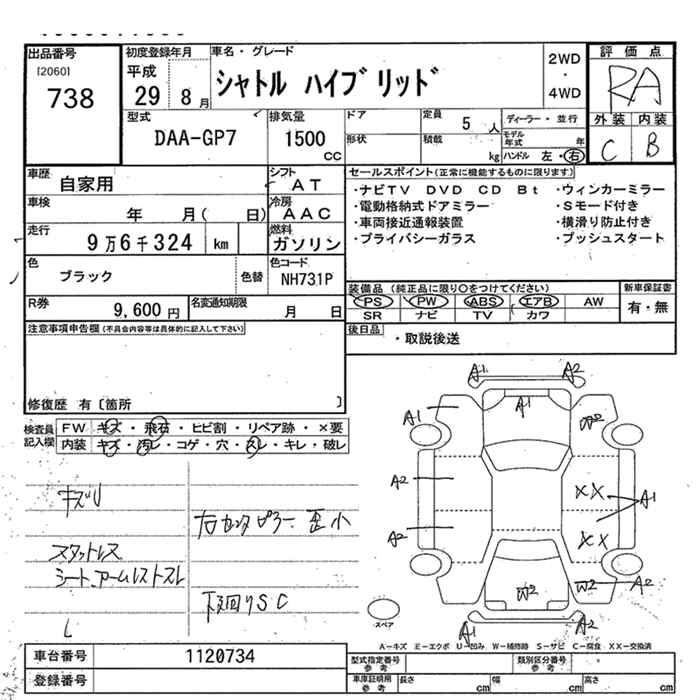 出品番号
[2060]
738
初度登録年月
平成
29 8月
車名・グレード
シャトル ハイブリッド
2WD
・
4WD
評価点
RA
外装 内装
C B
型式
DAA-GP7
排気量
1500
CC
ドア
形状
定員
5 人
積載
kg
ディーラー・並行
モデル年式 年
ハンドル 左・右
車歴
自家用
シフト
AT
車検
年 月( 日)
冷房
AAC
走行
9万6千324 km
燃料
ガソリン
色
ブラック
色替
色コード
NH731P
R券
9,600円
名変通知期限
月 日
セールスポイント(正常に機能するものに限ります)
・ナビTV DVD CD Bt ・ウィンカーミラー
・電動格納式ドアミラー ・Sモード付き
・車両接近通報装置 ・横滑り防止付き
・プライバシーガラス ・プッシュスタート
装備品(純正品に限り○をつけてください)
新車保証書
PS PW ABS エアB AW
SR ナビ TV カワ
有・無
後日品
・取説後送
注意事項申告欄(不具合内容等は具体的に記入して下さい)
修復歴 有〔箇所 〕
検査員
記入欄
FW キズ・飛石・ヒビ割・リペア跡・×要
内装 キズ・汚レ・コゲ・穴・スレ・キレ・破レ
キズU
スタットレス
シート、アームレストスレ
右センタピラー歪小
下回りSC
A1 A2
A1 A1 W2
A2 XX A1
A2 XX
W2 W2 A2
A1 A2
スペア
A-キズ E-エクボ U-凹み W-補修跡 S-サビ C-腐食 XX-交換済
車台番号
1120734
登録番号
型式指定番号
参考
類別区分番号
参考
車庫証明用
参考
長さ cm 幅 cm 高さ cm